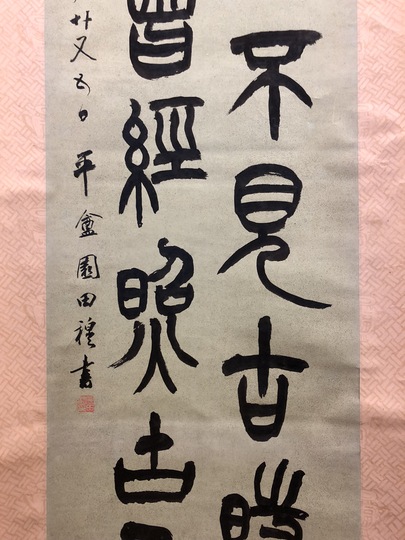 不見古時
曾經照古
廿又五日 平盦園田穆書